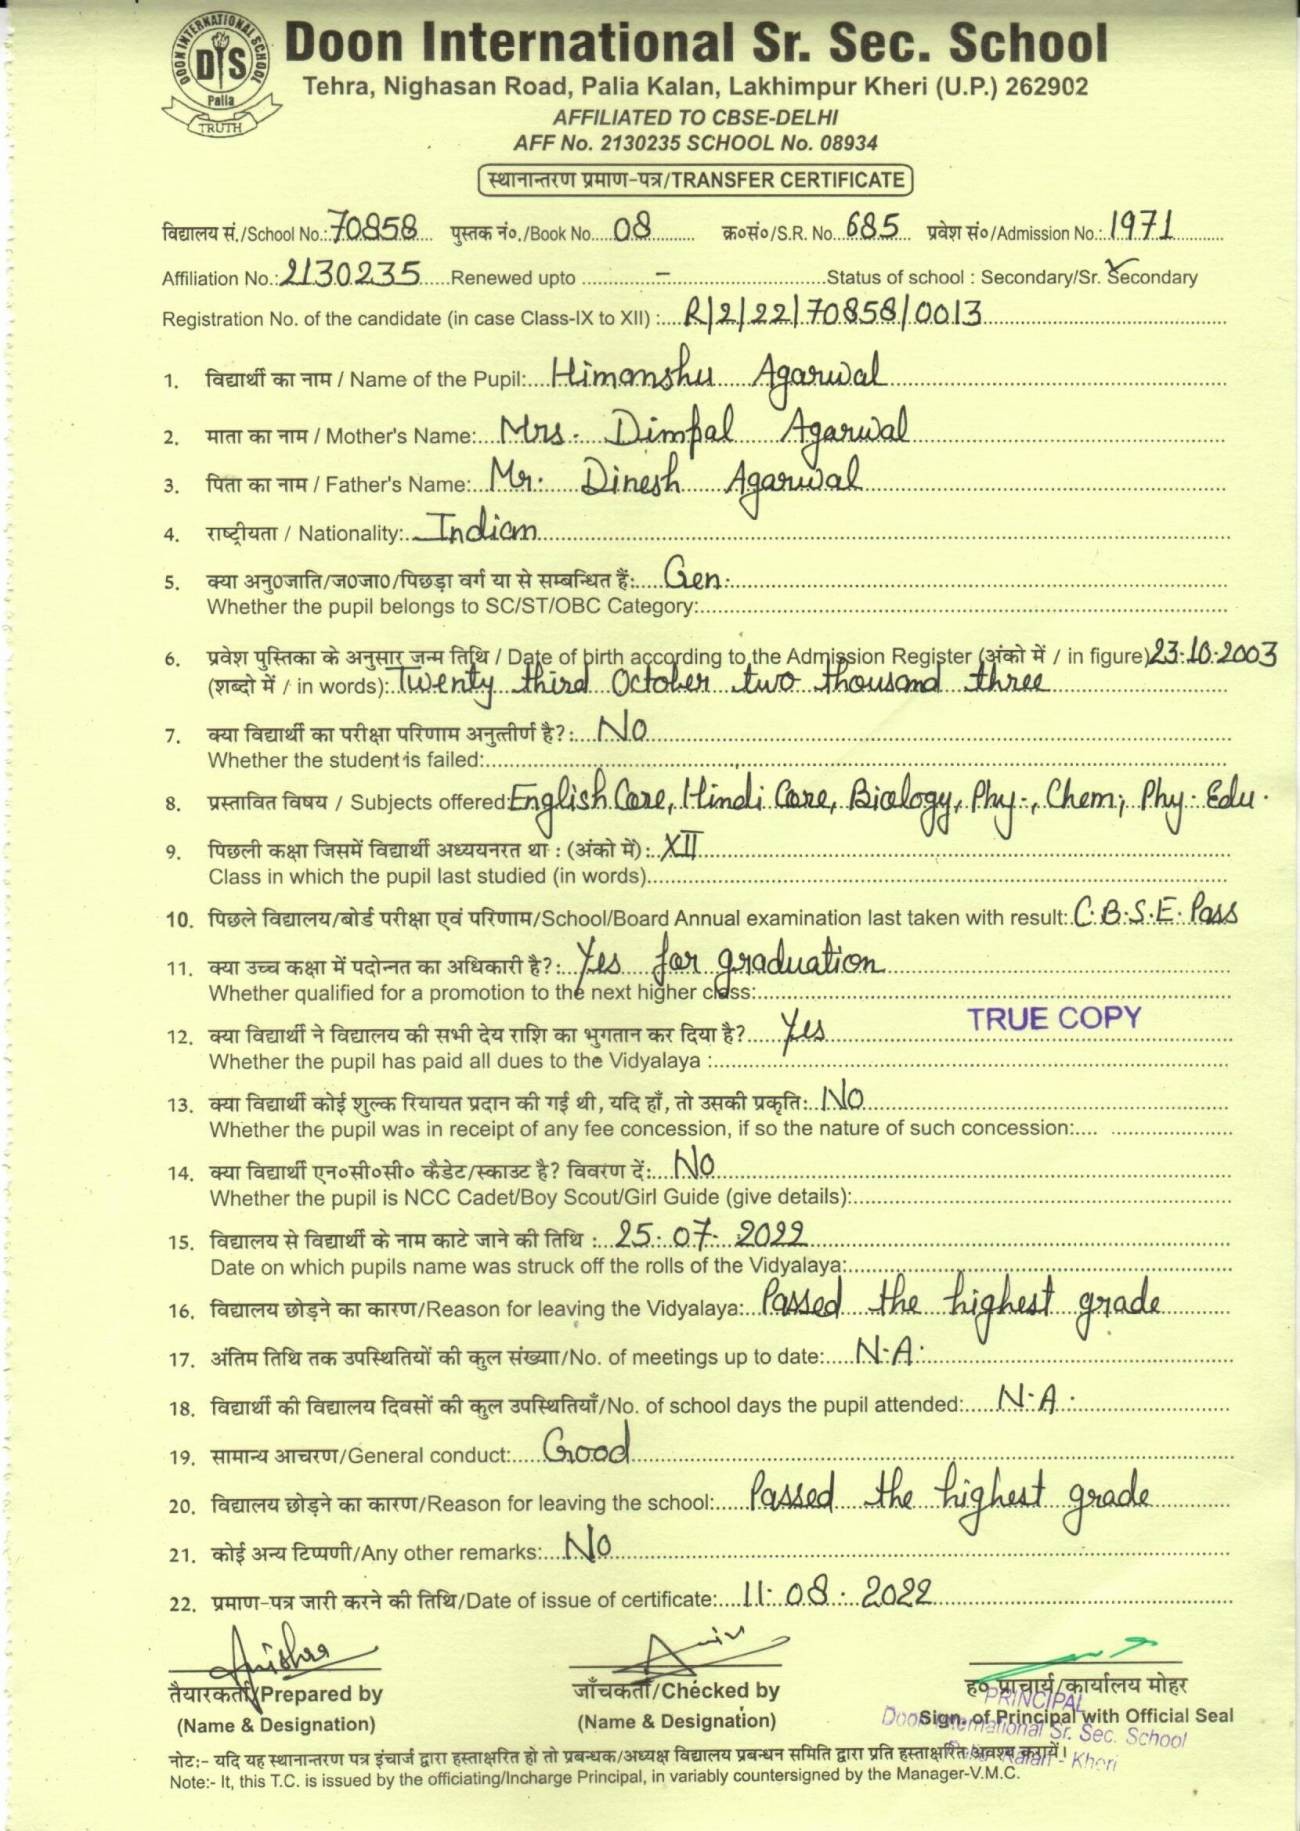 DOON INTERNATIONAL SCHOOL
DIS
Palia
TRUTH
Doon International Sr. Sec. School
Tehra, Nighasan Road, Palia Kalan, Lakhimpur Kheri (U.P.) 262902
AFFILIATED TO CBSE-DELHI
AFF No. 2130235 SCHOOL No. 08934
स्थानान्तरण प्रमाण-पत्र/TRANSFER CERTIFICATE
विद्यालय सं./School No.: 70858 पुस्तक नं०./Book No. 08 क्र०सं०/S.R. No. 685 प्रवेश सं०/Admission No.: 1971
Affiliation No.: 2130235 Renewed upto – Status of school : Secondary/Sr. Secondary
Registration No. of the candidate (in case Class-IX to XII) : R/2/22/70858/0013
1. विद्यार्थी का नाम / Name of the Pupil: Himanshu Agarwal
2. माता का नाम / Mother's Name: Mrs. Dimpal Agarwal
3. पिता का नाम / Father's Name: Mr. Dinesh Agarwal
4. राष्ट्रीयता / Nationality: Indian
5. क्या अनु0जाति/ज0जा0/पिछड़ा वर्ग या से सम्बन्धित हैं: Gen.
Whether the pupil belongs to SC/ST/OBC Category:
6. प्रवेश पुस्तिका के अनुसार जन्म तिथि / Date of birth according to the Admission Register (अंको में / in figure) 23-10-2003
(शब्दो में / in words): Twenty third October two thousand three
7. क्या विद्यार्थी का परीक्षा परिणाम अनुत्तीर्ण है?: No
Whether the student is failed:
8. प्रस्तावित विषय / Subjects offered: English Core, Hindi Core, Biology, Phy., Chem, Phy. Edu.
9. पिछली कक्षा जिसमें विद्यार्थी अध्ययनरत था : (अंको में): XII
Class in which the pupil last studied (in words)
10. पिछले विद्यालय/बोर्ड परीक्षा एवं परिणाम/School/Board Annual examination last taken with result: C.B.S.E. Pass
11. क्या उच्च कक्षा में पदोन्नत का अधिकारी है?: Yes for graduation
Whether qualified for a promotion to the next higher class:
TRUE COPY
12. क्या विद्यार्थी ने विद्यालय की सभी देय राशि का भुगतान कर दिया है? Yes
Whether the pupil has paid all dues to the Vidyalaya :
13. क्या विद्यार्थी कोई शुल्क रियायत प्रदान की गई थी, यदि हाँ, तो उसकी प्रकृति: No
Whether the pupil was in receipt of any fee concession, if so the nature of such concession:
14. क्या विद्यार्थी एन०सी०सी० कैडेट/स्काउट है? विवरण दें: No
Whether the pupil is NCC Cadet/Boy Scout/Girl Guide (give details):
15. विद्यालय से विद्यार्थी के नाम काटे जाने की तिथि : 25.07.2022
Date on which pupils name was struck off the rolls of the Vidyalaya:
16. विद्यालय छोड़ने का कारण/Reason for leaving the Vidyalaya: Passed the highest grade
17. अंतिम तिथि तक उपस्थितियों की कुल संख्याा/No. of meetings up to date: N.A.
18. विद्यार्थी की विद्यालय दिवसों की कुल उपस्थितियाँ/No. of school days the pupil attended: N.A.
19. सामान्य आचरण/General conduct: Good
20. विद्यालय छोड़ने का कारण/Reason for leaving the school: Passed the highest grade
21. कोई अन्य टिप्पणी/Any other remarks: No
22. प्रमाण-पत्र जारी करने की तिथि/Date of issue of certificate: 11.08.2022
तैयारकर्ता/Prepared by जाँचकर्ता/Checked by ह० प्राचार्य/कार्यालय मोहर
(Name & Designation) (Name & Designation) Sign. of Principal with Official Seal
PRINCIPAL
Doon International Sr. Sec. School
Palia Kalan - Kheri
नोटः- यदि यह स्थानान्तरण पत्र इंचार्ज द्वारा हस्ताक्षरित हो तो प्रबन्धक/अध्यक्ष विद्यालय प्रबन्धन समिति द्वारा प्रति हस्ताक्षरित अवश्य करायें।
Note:- It, this T.C. is issued by the officiating/Incharge Principal, in variably countersigned by the Manager-V.M.C.